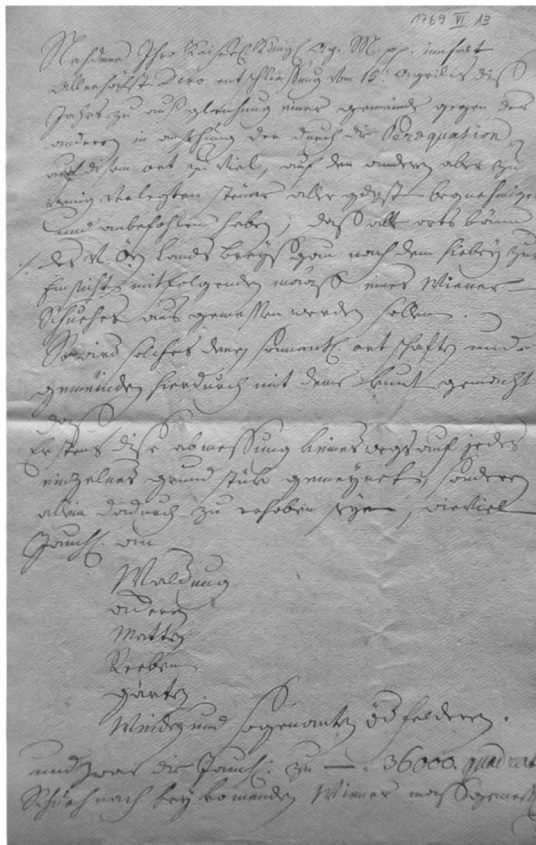 1769 VI 13
Nachdeme Ihro Kais: Königl: Ap: M. pp. innhalt
Allerhöchst Dero entschliessung vom 15: Aprilis diß
Jahrs zu außgleichung einer gemeinde gegen der
anderen in ansehung der durch die Peraequation
auf disem ort zu viel, auf den anderen aber zu
wenig verlegten steüer aller gdgst begnehmiget
und anbefohlen haben, daß alle orts bänn
des V: Öst: Lands Breysgau nach dem hiebey zur
Einsicht mitfolgenden maaß eines Wiener
Schuehes aus gemessen werden sollen.
So wird solches denen samentl: ortschafften und
gemeinden hierdurch mit deme kunt gemacht
daß
Erstens dise abmessung keines wegs auf jedes
einzelnes grund stück gemeynet, sonderen
allein dadurch zu erheben seye, wieviel
Jauch: an
Waldung
ackeren
Matten
Reeben
gärten
Weiden und sogenanten öd felderen.
und zwar die Jauch: zu 36000. quadrat
Schueh nach bey komenden Wiener maß